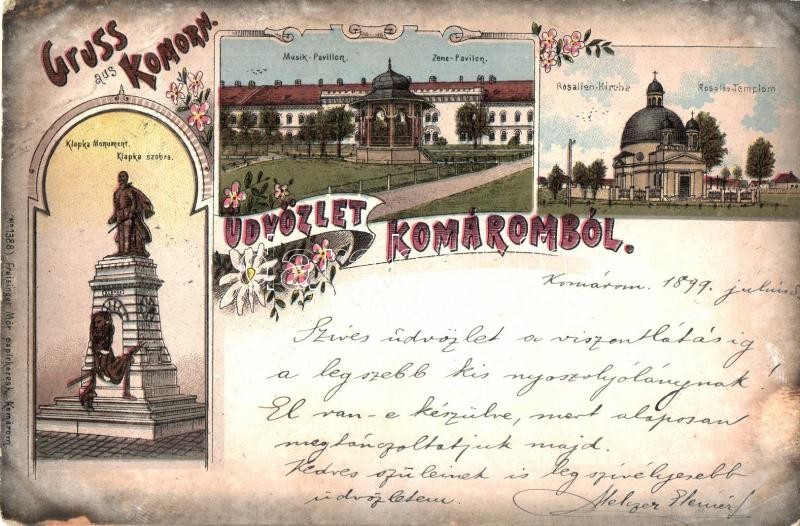 Gruss
aus
Komorn.
Musik-Pavillon.
Zene-Pavilon.
Rosalien-Kirche
Rosalia-Templom
Klapka Monument.
Klapka szobra.
ÜDVÖZLET
KOMÁROMBÓL.
Komárom. 1899. július
Szives üdvözlet a viszontlátásig
a legszebb kis nyoszolyólánynak!
El van-e készülve, mert alaposan
megtánczoltatjuk majd.
Kedves szüleinet is legszívélyesebb
üdvözletem. Elemér
1388) Freisinger Mór papirkeresk. Komárom